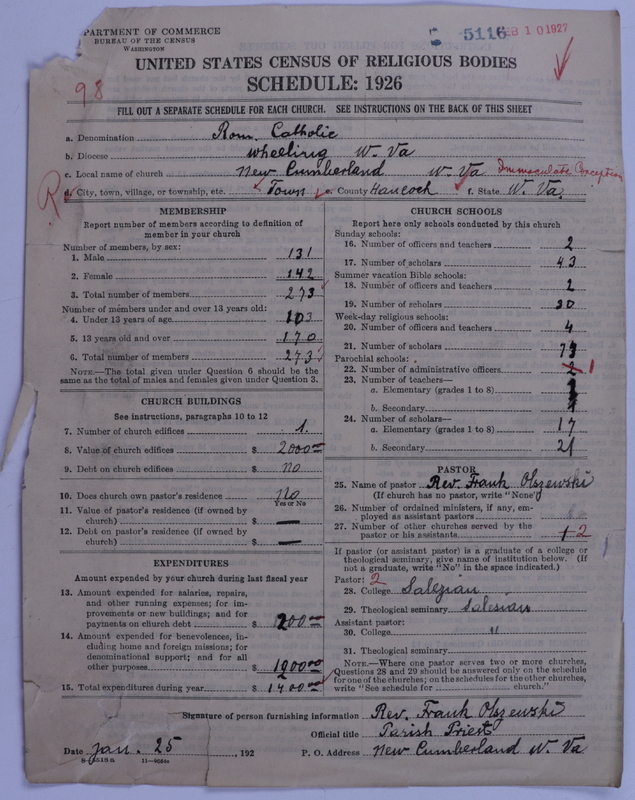 DEPARTMENT OF COMMERCE
BUREAU OF THE CENSUS
WASHINGTON
5116 FEB 10 1927
UNITED STATES CENSUS OF RELIGIOUS BODIES
SCHEDULE: 1926
98
FILL OUT A SEPARATE SCHEDULE FOR EACH CHURCH. SEE INSTRUCTIONS ON THE BACK OF THIS SHEET
a. Denomination Rom. Catholic
b. Diocese Wheeling W. Va
c. Local name of church New Cumberland W. Va Immaculate Conception
d. City, town, village, or township, etc. Town e. County Hancock f. State W. Va.
R
MEMBERSHIP
Report number of members according to definition of
member in your church
Number of members, by sex:
1. Male 131
2. Female 142
3. Total number of members 273
Number of members under and over 13 years old:
4. Under 13 years of age 103
5. 13 years old and over 170
6. Total number of members 273
NOTE.—The total given under Question 6 should be the
same as the total of males and females given under Question 3.
CHURCH BUILDINGS
See instructions, paragraphs 10 to 12
7. Number of church edifices 1.
8. Value of church edifices $ 2000.00
9. Debt on church edifices $ no
10. Does church own pastor's residence no
Yes or No
11. Value of pastor's residence (if owned by
church) $ —
12. Debt on pastor's residence (if owned by
church) $ —
EXPENDITURES
Amount expended by your church during last fiscal year
13. Amount expended for salaries, repairs,
and other running expenses; for im-
provements or new buildings; and for
payments on church debt $ 200.00
14. Amount expended for benevolences, in-
cluding home and foreign missions; for
denominational support; and for all
other purposes $ 1200.00
15. Total expenditures during year $ 1400.00
CHURCH SCHOOLS
Report here only schools conducted by this church
Sunday schools:
16. Number of officers and teachers 2
17. Number of scholars 43
Summer vacation Bible schools:
18. Number of officers and teachers 2
19. Number of scholars 30
Week-day religious schools:
20. Number of officers and teachers 4
21. Number of scholars 73
Parochial schools:
22. Number of administrative officers 2 1
23. Number of teachers—
a. Elementary (grades 1 to 8) 1
b. Secondary 1
24. Number of scholars—
a. Elementary (grades 1 to 8) 17
b. Secondary 21
PASTOR
25. Name of pastor Rev. Frank Olszewski
(If church has no pastor, write "None")
26. Number of ordained ministers, if any, em-
ployed as assistant pastors
27. Number of other churches served by the
pastor or his assistants 1 2
If pastor (or assistant pastor) is a graduate of a college or
theological seminary, give name of institution below. (If
not a graduate, write "No" in the space indicated.)
Pastor: 2
28. College Salesian
29. Theological seminary Salesian
Assistant pastor:
30. College "
31. Theological seminary
NOTE.—Where one pastor serves two or more churches,
Questions 28 and 29 should be answered only on the schedule
for one of the churches; on the schedules for the other churches,
write "See schedule for church."
Signature of person furnishing information Rev. Frank Olszewski
Official title Parish Priest
Date Jan. 25, 192 P. O. Address New Cumberland W. Va